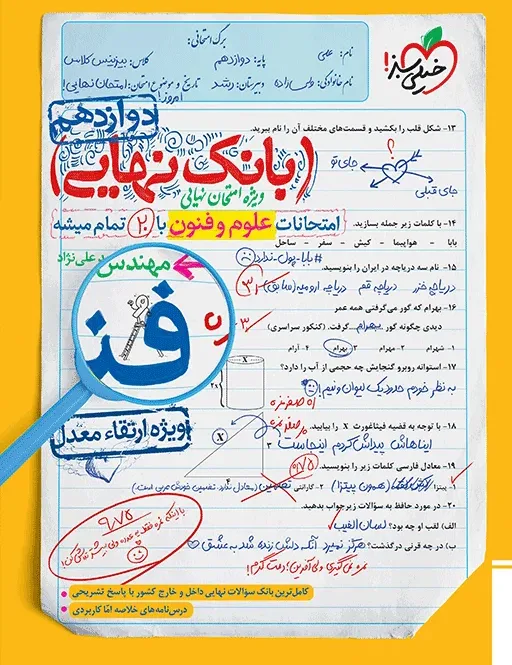 برگ امتحانی:
نام: علی
پایه: دوازدهم
کلاس: بیزینس کلاس
نام خانوادگی:
دبیرستان: رشد
تاریخ و موضوع امتحان: امتحان نهایی!
امروز!
خیلی سبز!
دوازدهم
بانک نهایی
ویژه امتحان نهایی
امتحانات علوم و فنون با ۲۰ تمام میشه
مهندس علی‌نژاد
فن
ویژه ارتقاء معدل
۱۳- شکل قلب را بکشید و قسمت‌های مختلف آن را نام ببرید.
؟
جای تو
جای قبلی
۱۴- با کلمات زیر جمله بسازید.
بابا - هواپیما - کیش - سفر - ساحل
#بابا-پول-ندارد
۱۵- نام سه دریاچه در ایران را بنویسید.
دریاچه خزر دریاچه قم دریاچه ارومیه (سابق)
۱۶- بهرام که گور می‌گرفتی همه عمر
دیدی چگونه گور بهرام گرفت. (کنکور سراسری)
۱- شهرام ۲- مهرام ۳- بهرام ۴- آرام
۱۷- استوانه روبرو گنجایش چه حجمی از آب را دارد؟
به نظر خودم حدود یک لیوان و نیم!
X
۲۸
۱۸- با توجه به قضیه فیثاغورث X را بیابید.
ایناهاش پیداش کردم اینجاست!
X
۳
۴
۱۹- معادل فارسی کلمات زیر را بنویسید.
۰/۷۵
۱- پیتزا (همون پیتزا) ۲- گارانتی تضمین (معادل ندارد. تضمین خودش عربی است.)
۲۰- در مورد حافظ به سؤالات زیر جواب بدهید.
الف) لقب او چه بود؟ لسان الغیب
ب) در چه قرنی درگذشت؟ هرگز نمیرد آنکه دلش زنده شد به عشق
۹/۷۵
کامل‌ترین بانک سؤالات نهایی داخل و خارج کشور با پاسخ تشریحی
درس‌نامه‌های خلاصه امّا کاربردی